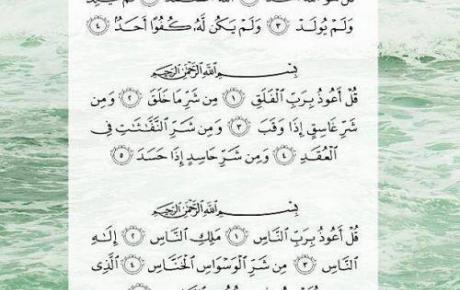 وَلَمْ يُولَدْ ٣ وَلَمْ يَكُن لَّهُۥ كُفُوًا أَحَدٌۢ ٤
بِسْمِ اللَّهِ الرَّحْمَٰنِ الرَّحِيمِ
قُلْ أَعُوذُ بِرَبِّ الْفَلَقِ ١ مِن شَرِّ مَا خَلَقَ ٢ وَمِن
شَرِّ غَاسِقٍ إِذَا وَقَبَ ٣ وَمِن شَرِّ النَّفَّاثَاتِ فِي
الْعُقَدِ ٤ وَمِن شَرِّ حَاسِدٍ إِذَا حَسَدَ ٥
بِسْمِ اللَّهِ الرَّحْمَٰنِ الرَّحِيمِ
قُلْ أَعُوذُ بِرَبِّ النَّاسِ ١ مَلِكِ النَّاسِ ٢ إِلَٰهِ
النَّاسِ ٣ مِن شَرِّ الْوَسْوَاسِ الْخَنَّاسِ ٤ الَّذِى